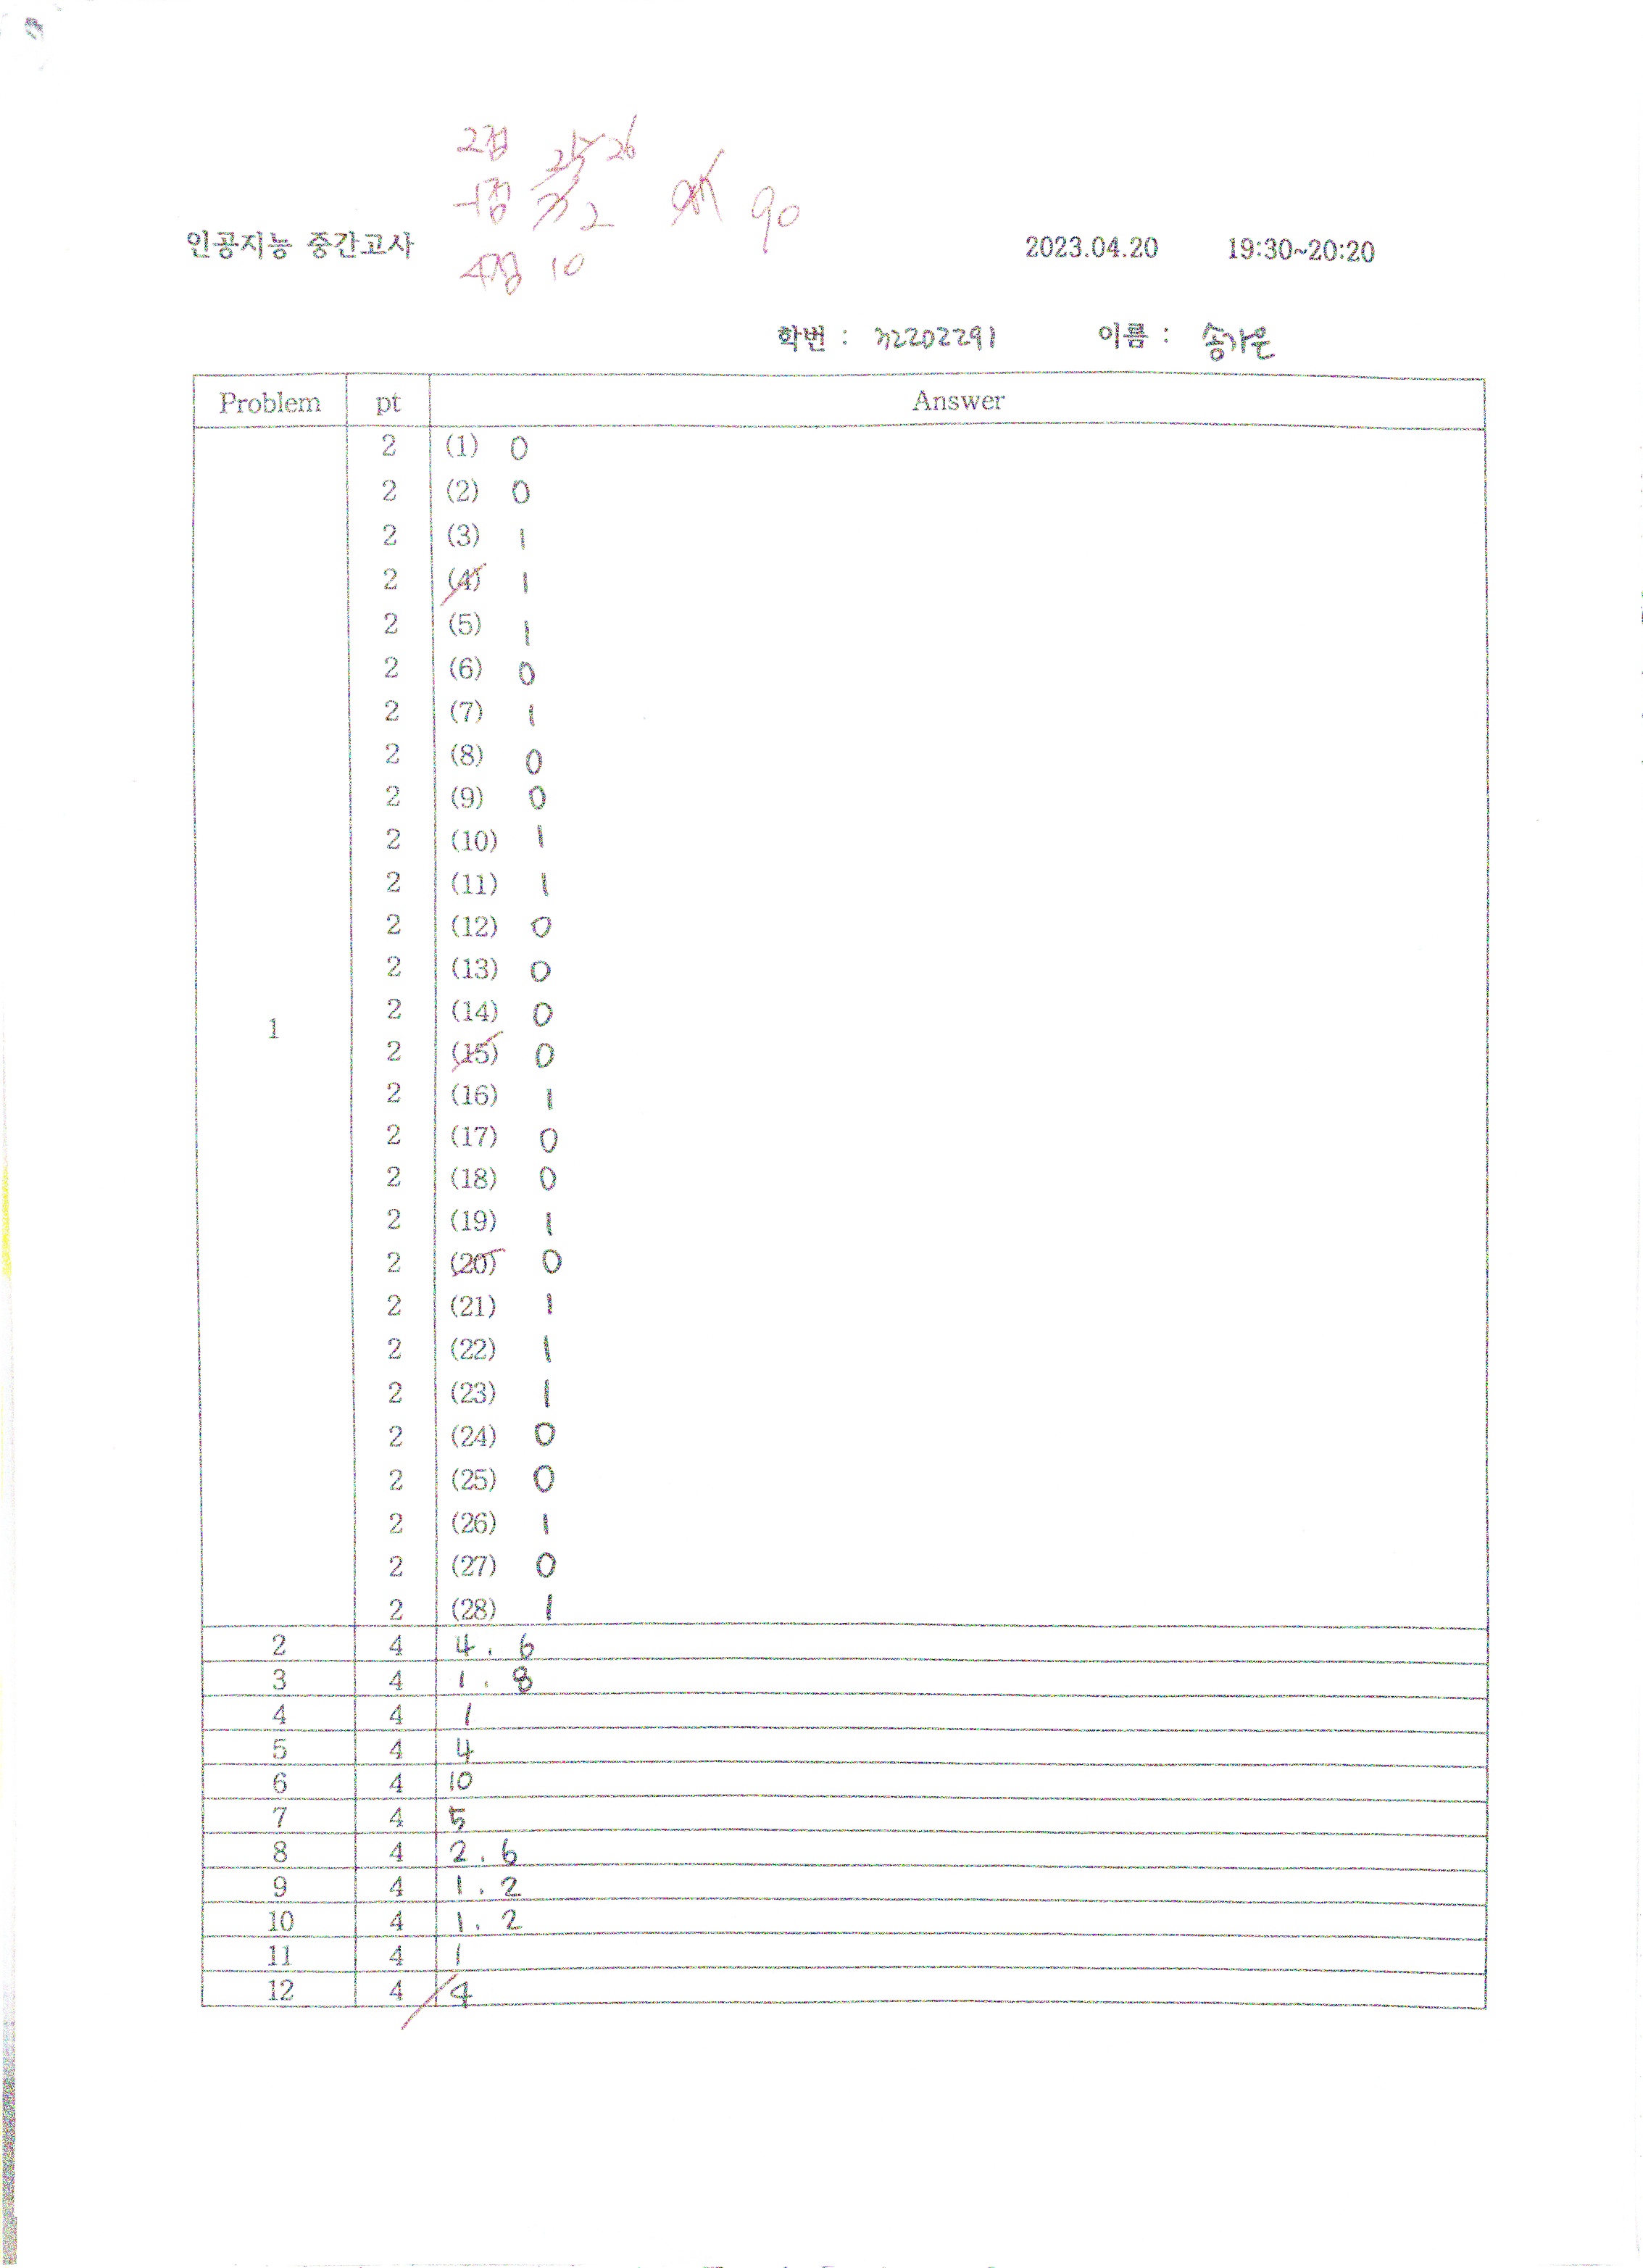 2점 26
-1점 2 90
인공지능 중간고사 2023.04.20 19:30~20:20
4점 10
학번 : 72202291 이름 : 송가은
Problem pt Answer
2 (1) 0
2 (2) 0
2 (3) 1
2 (4) 1
2 (5) 1
2 (6) 0
2 (7) 1
2 (8) 0
2 (9) 0
2 (10) 1
2 (11) 1
2 (12) 0
2 (13) 0
2 (14) 0
1
2 (15) 0
2 (16) 1
2 (17) 0
2 (18) 0
2 (19) 1
2 (20) 0
2 (21) 1
2 (22) 1
2 (23) 1
2 (24) 0
2 (25) 0
2 (26) 1
2 (27) 0
2 (28) 1
2 4 4. 6
3 4 1. 8
4 4 1
5 4 4
6 4 10
7 4 5
8 4 2. 6
9 4 1. 2
10 4 1. 2
11 4 1
12 4 4